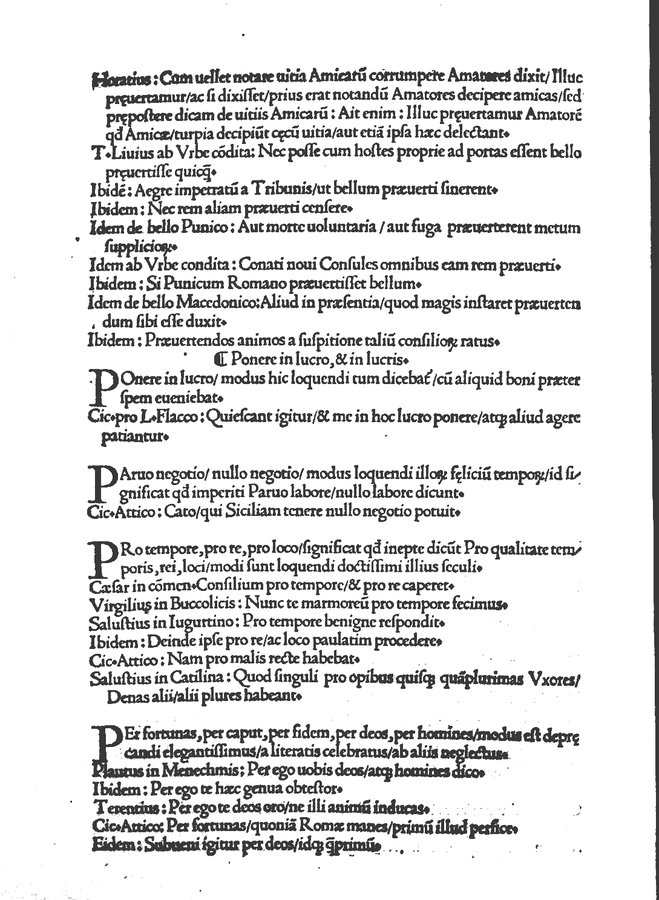 Horatius: Cum uellet notare uitia Amicarū corrumpere Amatores dixit/ Illuc
pręuertamur/ac si dixisset/prius erat notandū Amatores decipere amicas/sed
prępostere dicam de uitiis Amicarū: Ait enim: Illuc pręuertamur Amatorē
qđ Amicæ/turpia decipiūt cęcū uitia/aut etiā ipsa hæc delectant.
T.Liuius ab Vrbe cōdita: Nec posse cum hostes proprie ad portas essent bello
pręuertisse quicꝗ.
Ibidē: Aegre imperatū a Tribunis/ut bellum præuerti sinerent.
Ibidem: Nec rem aliam præuerti censere.
Idem de bello Punico: Aut morte uoluntaria / aut fuga præuerterent metum
supplicioꝝ.
Idem ab Vrbe condita: Conati noui Consules omnibus eam rem præuerti.
Ibidem: Si Punicum Romano præuertisset bellum.
Idem de bello Macedonico:Aliud in præsentia/quod magis instaret præuerten
dum sibi esse duxit.
Ibidem: Præuertendos animos a suspitione taliū consilioꝝ ratus.
¶ Ponere in lucro,& in lucris.
POnere in lucro/ modus hic loquendi tum dicebat᷑/cū aliquid boni præter
spem eueniebat.
Cic.pro L.Flacco: Quiescant igitur/& me in hoc lucro ponere/atꝗ aliud agere
patiantur.
PAruo negotio/ nullo negotio/ modus loquendi illoꝝ fęliciū tempoꝝ/id si/
gnificat qđ imperiti Paruo labore/nullo labore dicunt.
Cic.Attico: Cato/qui Siciliam tenere nullo negotio potuit.
PRo tempore,pro re,pro loco/significat qđ inepte dicūt Pro qualitate tem/
poris,rei,loci/modi sunt loquendi doctissimi illius seculi.
Cæsar in cōmen.Consilium pro tempore/& pro re caperet.
Virgilius in Buccolicis: Nunc te marmoreū pro tempore fecimus.
Salustius in Iugurtino: Pro tempore benigne respondit.
Ibidem: Deinde ipse pro re/ac loco paulatim procedere.
Cic.Attico: Nam pro malis recte habebat.
Salustius in Catilina: Quod singuli pro opibus quisꝗ quāplurimas Vxores/
Denas alii/alii plures habeant.
PEr fortunas,per caput,per fidem,per deos,per homines/modus est deprę
candi elegantissimus/a literatis celebratus/ab aliis neglectus.
Plautus in Menechmis: Per ego uobis deos/atꝗ homines dico.
Ibidem: Per ego te hæc genua obtestor.
Terentius: Per ego te deos oro/ne illi animū inducas.
Cic.Attico: Per fortunas/quoniā Romæ manes/primū illud perfice.
Eidem: Subueni igitur per deos/idꝗ q̄primū.